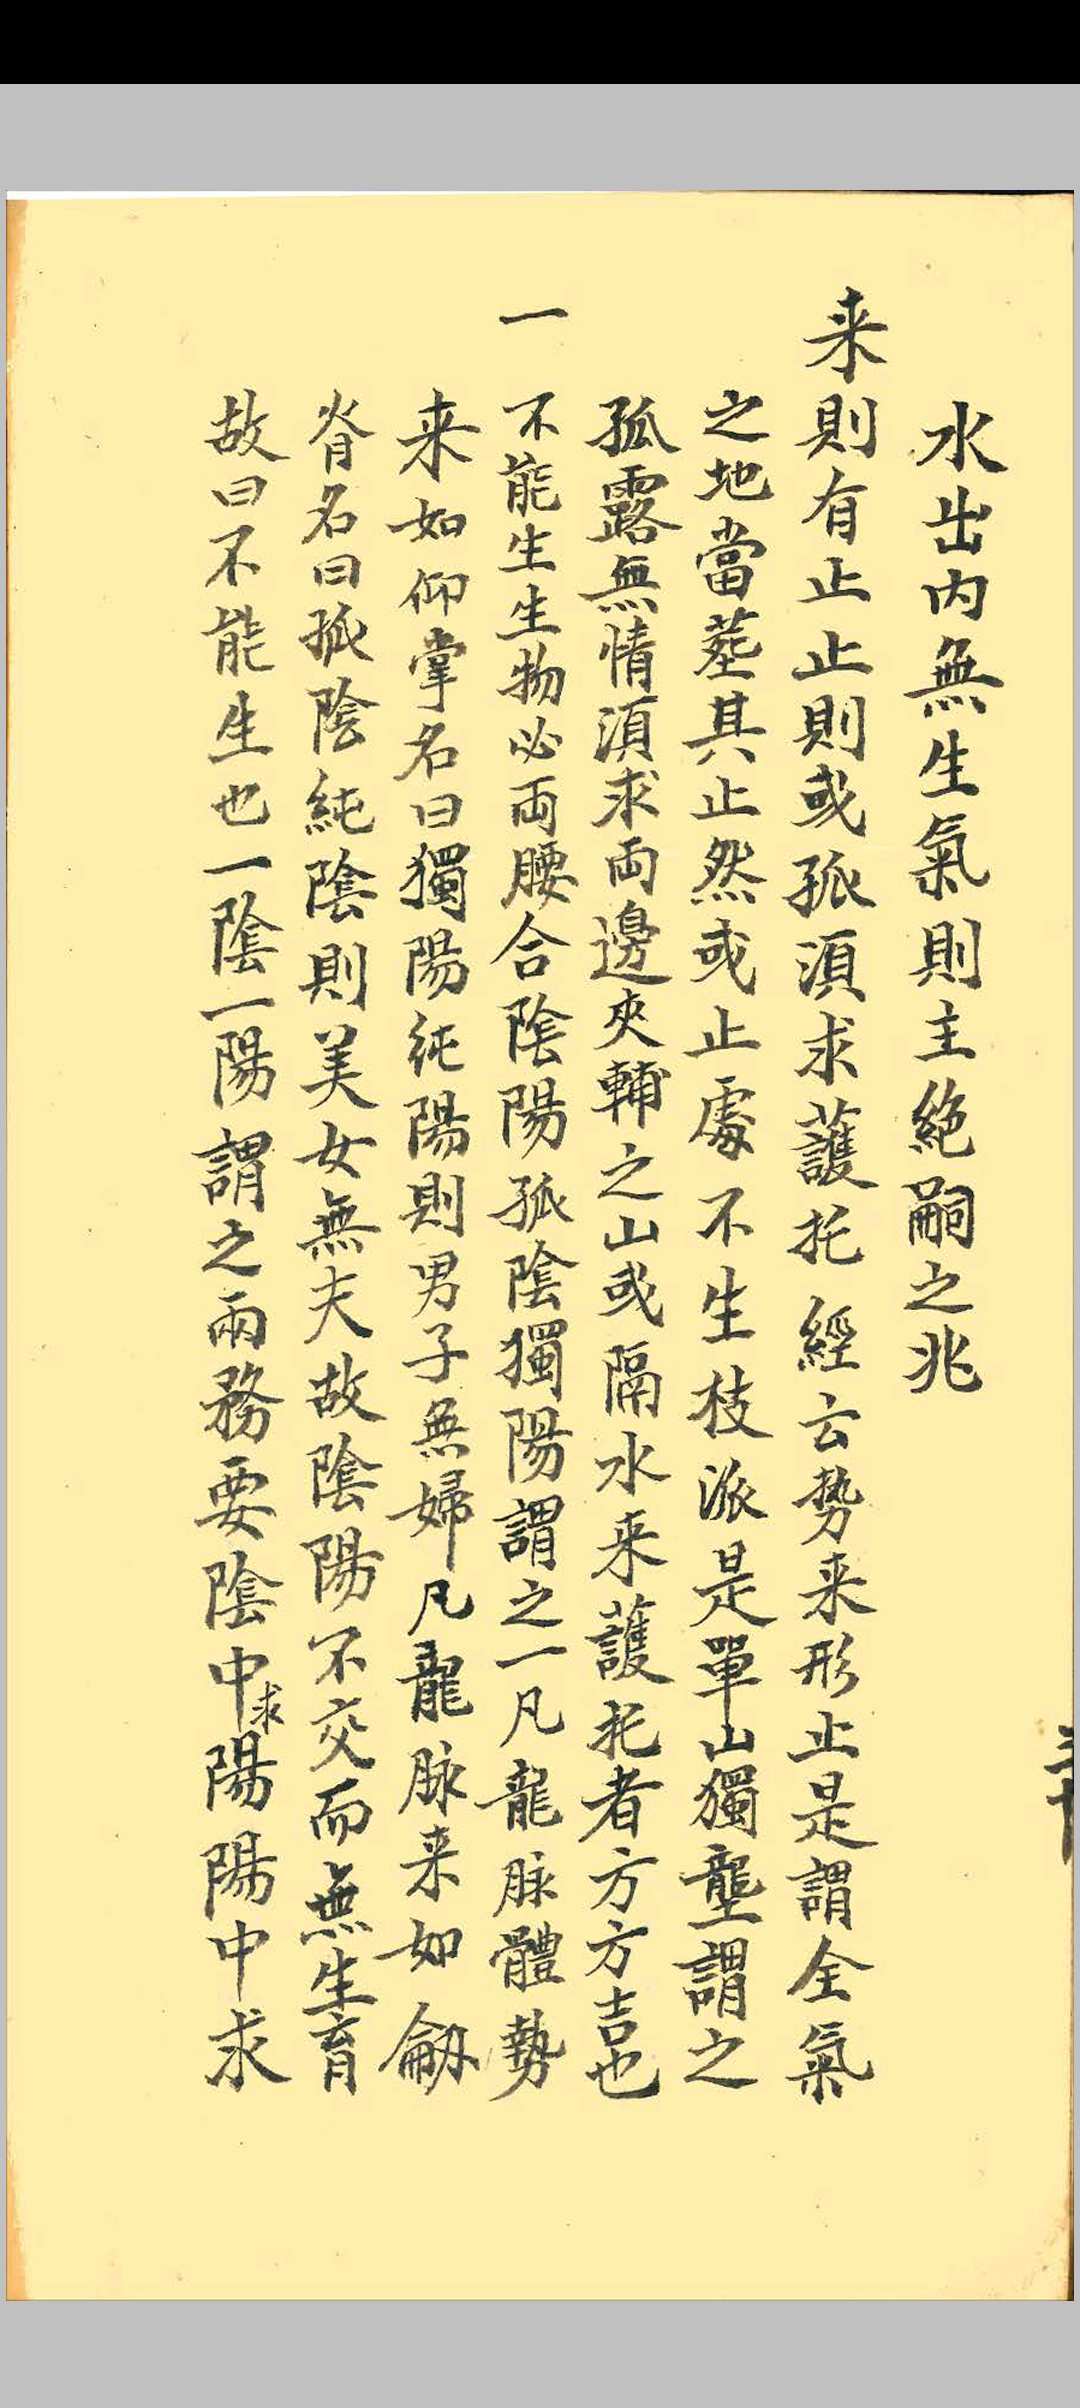 水出内無生氣則主絶嗣之兆
来則有止止則或孤湏求護托經云势来形止是謂全氣
之地當塟其止然或止處不生枝派是單山獨壟謂之
孤露無情湏求両邊夾輔之山或隔水来護托者方方吉也
一不能生生物必両腰合陰陽孤陰獨陽謂之一凡龍脉體勢
来如仰掌名曰獨陽純陽則男子無婦凡龍脉来如劒
脊名曰孤陰純陰則美女無夫故陰陽不交而無生育
故曰不能生也一陰一陽謂之兩務要陰中求陽陽中求